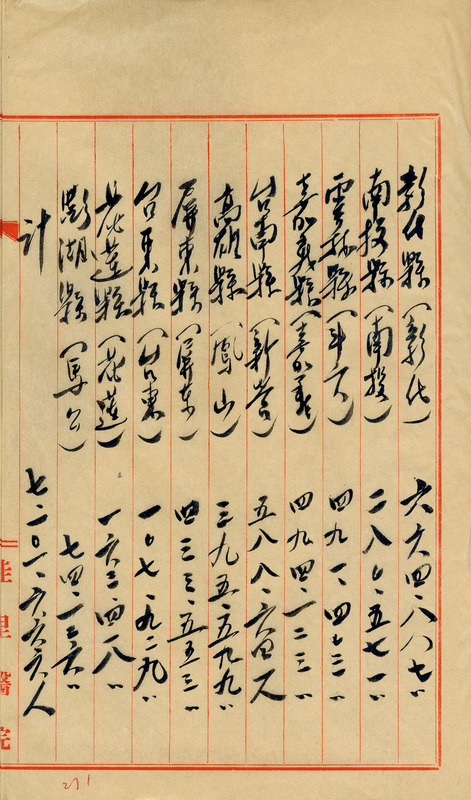 彰化縣（彰化） 六六四、八八七〃
南投縣（南投） 二八〇、五七一〃
雲林縣（斗六） 四九一、四〇三〃
嘉義縣（嘉義） 四九四、一二三〃
台南縣（新营） 五八八、六四
高雄縣（鳳山） 三九五、五九九〃
屏東縣（屏东） 四三三、五五三〃
台東縣（台東） 一〇七、九二九〃
花蓮縣（花蓮） 一六三、四一八〃
澎湖縣（馬公） 七四、一三六〃
計 七、二〇一、六六六人
佳里醫院
271